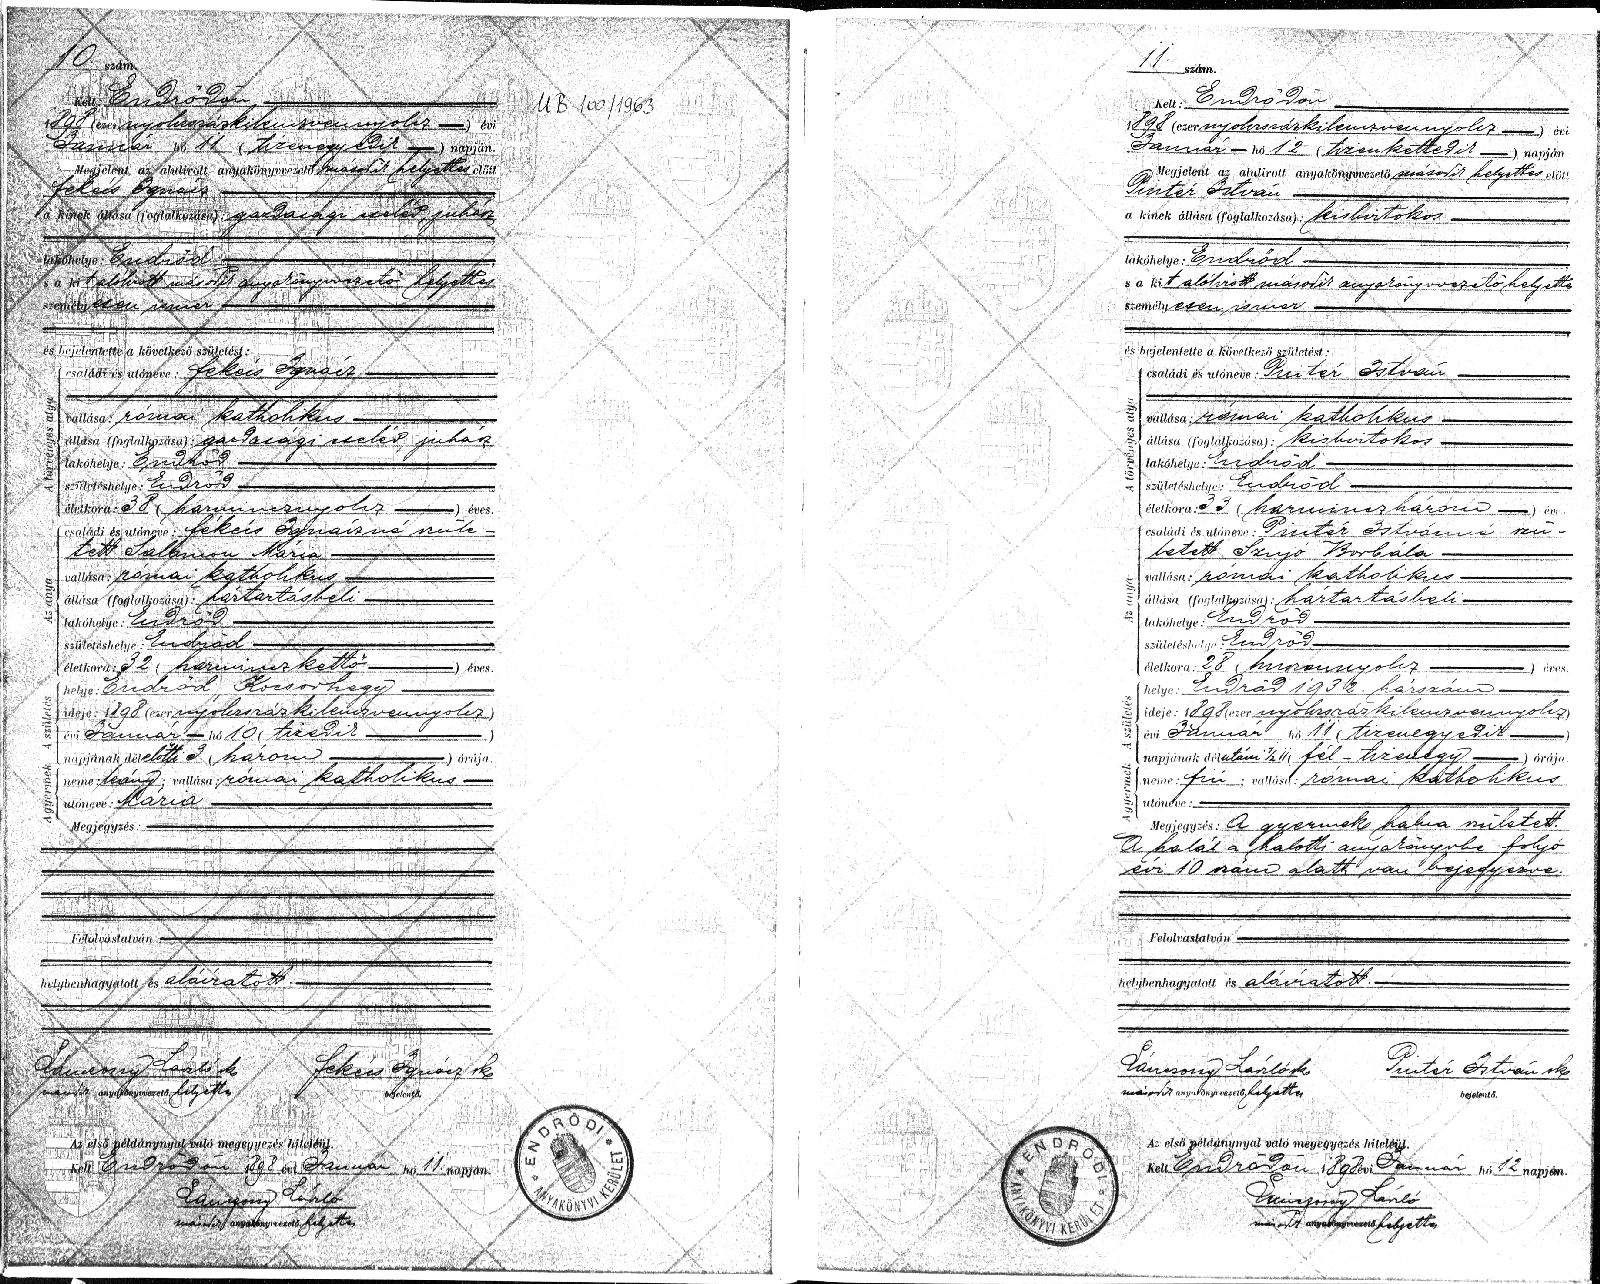 10 szám.
Kelt: Endrődön
1898 (ezer nyolcszázkilenczvennyolcz) évi
Január hó 11 (tizenegyedik) napján.
Megjelent az alulirott anyakönyvvezető második helyettes előtt
Fekécs Ignácz
a kinek állása (foglalkozása): gazdasági cseléd, juhász
lakóhelye: Endrőd
s a kit alólirott második anyakönyvvezető helyettes
személyesen ismer
és bejelentette a következő születést:
A törvényes atya
családi és utóneve: Fekécs Ignácz
vallása: római katholikus
állása (foglalkozása): gazdasági cseléd, juhász
lakóhelye: Endrőd
születéshelye: Endrőd
életkora: 38 (harmincznyolcz) éves.
Az anya
családi és utóneve: Fekécs Ignáczné szüle-
tett Salamon Mária
vallása: római katholikus
állása (foglalkozása): háztartásbeli
lakóhelye: Endrőd
születéshelye: Endrőd
életkora: 32 (harminczkettő) éves.
A születés
helye: Endrőd, Kocsorhegy
ideje: 1898 (ezer nyolcszázkilenczvennyolcz)
évi Január hó 10 (tizedik)
napjának délelőtti 3 (három) órája.
A gyermek
neme: leány; vallása: római katholikus
utóneve: Mária
Megjegyzés:
Felolvastatván
helybenhagyatott és aláíratott.
Lánczony László sk
második anyakönyvvezető helyettes
Fekécs Ignácz sk
bejelentő.
Az első példánynyal való megegyezés hiteléül.
Kelt Endrődön 1898 évi Január hó 11 napján.
Lánczony László
második anyakönyvvezető helyettes
UB 100/1963
ENDRŐDI ANYAKÖNYVI KERÜLET
11 szám.
Kelt: Endrődön
1898 (ezer nyolcszázkilenczvennyolcz) évi
Január hó 12 (tizenkettedik) napján
Megjelent az alulirott anyakönyvvezető második helyettes előtt
Pintér István
a kinek állása (foglalkozása): kisbirtokos
lakóhelye: Endrőd
s a kit alólirott második anyakönyvvezető helyettes
személyesen ismer
és bejelentette a következő születést:
A törvényes atya
családi és utóneve: Pintér István
vallása: római katholikus
állása (foglalkozása): kisbirtokos
lakóhelye: Endrőd
születéshelye: Endrőd
életkora: 33 (harminczhárom) év
Az anya
családi és utóneve: Pintér Istvánné szü-
letett Szujó Borbála
vallása: római katholikus
állása (foglalkozása): háztartásbeli
lakóhelye: Endrőd
születéshelye: Endrőd
életkora: 28 (huszonnyolcz) éves.
A születés
helye: Endrőd 1932 házszám
ideje: 1898 (ezer nyolcszázkilenczvennyolcz)
évi Január hó 11 (tizenegyedik)
napjának délutáni ½11 (fél-tizenegy) órája
A gyermek
neme: fiú; vallása: római katholikus
utóneve:
Megjegyzés: A gyermek halva született.
A halál a halotti anyakönyvbe folyó
évi 10 szám alatt van bejegyezve.
Felolvastatván
helybenhagyatott és aláíratott.
Lánczony László sk
második anyakönyvvezető helyettes
Pintér István sk
bejelentő.
Az első példánynyal való megegyezés hiteléül.
Kelt Endrődön 1898 évi Január hó 12 napján.
Lánczony László
második anyakönyvvezető helyettes
ENDRŐDI ANYAKÖNYVI KERÜLET